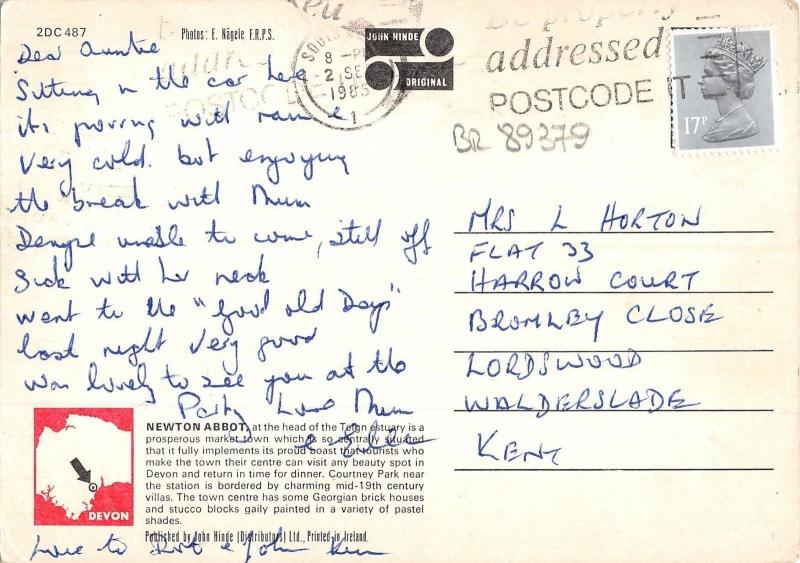 2DC 487
Photos: E. Nägele F.R.P.S.
JOHN HINDE
ORIGINAL
8 - P
2 SE
1985
1
Be properly
addressed
POSTCODE IT
17P
BR 89379
Dear Auntie
Sitting in the car here
its pouring with rain
Very cold. but enjoying
the break with Mum
unable to come, still off
Sick with her neck
went to the "Good old Days"
last night Very good
was lovely to see you at the
Party Love Mum
MRS L HORTON
FLAT 33
HARROW COURT
BROMLEY CLOSE
LORDSWOOD
WALDERSLADE
KENT
DEVON
NEWTON ABBOT, at the head of the Teign estuary is a
prosperous market town which is so centrally situated
that it fully implements its proud boast that tourists who
make the town their centre can visit any beauty spot in
Devon and return in time for dinner. Courtney Park near
the station is bordered by charming mid-19th century
villas. The town centre has some Georgian brick houses
and stucco blocks gaily painted in a variety of pastel
shades.
Published by John Hinde (Distributors) Ltd., Printed in Ireland.
Love to John